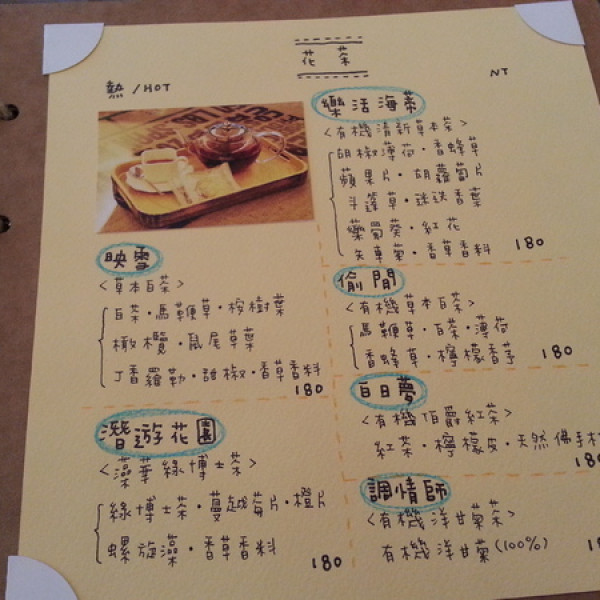 花茶
熱/HOT
NT
樂活海蒂
<有機清新草本茶>
胡椒薄荷・香蜂草
蘋果片・胡蘿蔔片
斗篷草・迷迭香葉
藥蜀葵・紅花
矢車菊・香草香料 180
映雪
<草本白茶>
白茶・馬鞭草・桉樹葉
橄欖・鼠尾草葉
丁香羅勒・甜椒・香草香料
180
偷閒
<有機草本白茶>
馬鞭草・白茶・薄荷
香蜂草・檸檬香芧 180
白日夢
<有機伯爵紅茶>
紅茶・檸檬皮・天然佛手柑
180
潛遊花園
<藻華綠博士茶>
綠博士茶・蔓越莓片・橙片
螺旋藻・香草香料 180
調情師
<有機洋甘菊茶>
有機洋甘菊(100%)